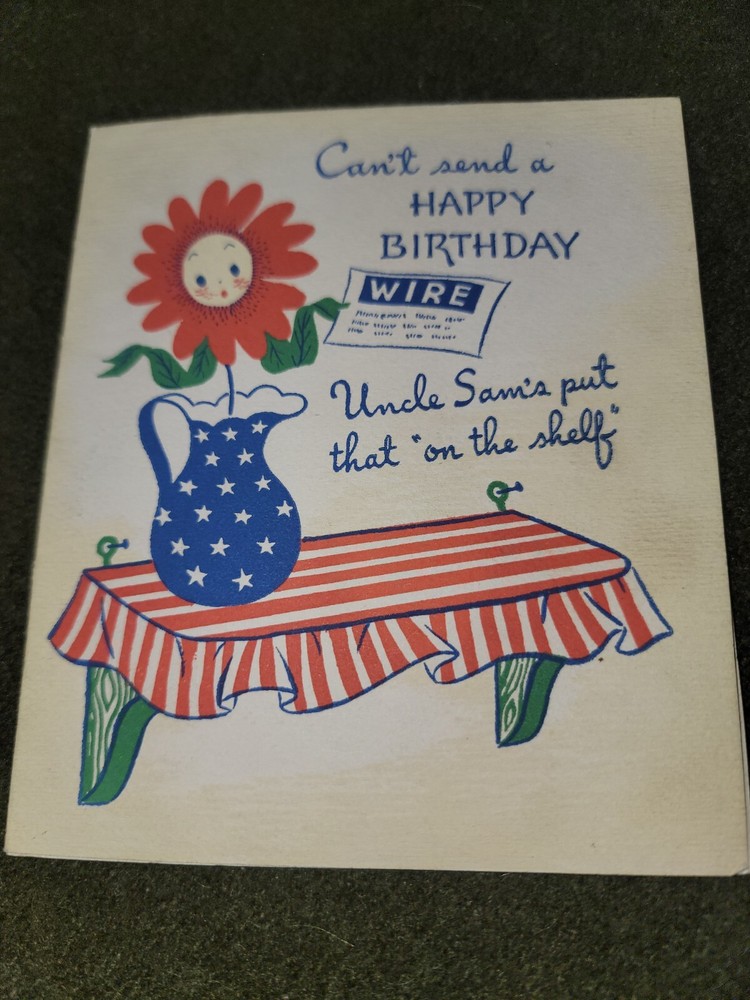 Can't send a
HAPPY
BIRTHDAY
WIRE
Uncle Sam's put
that "on the shelf"